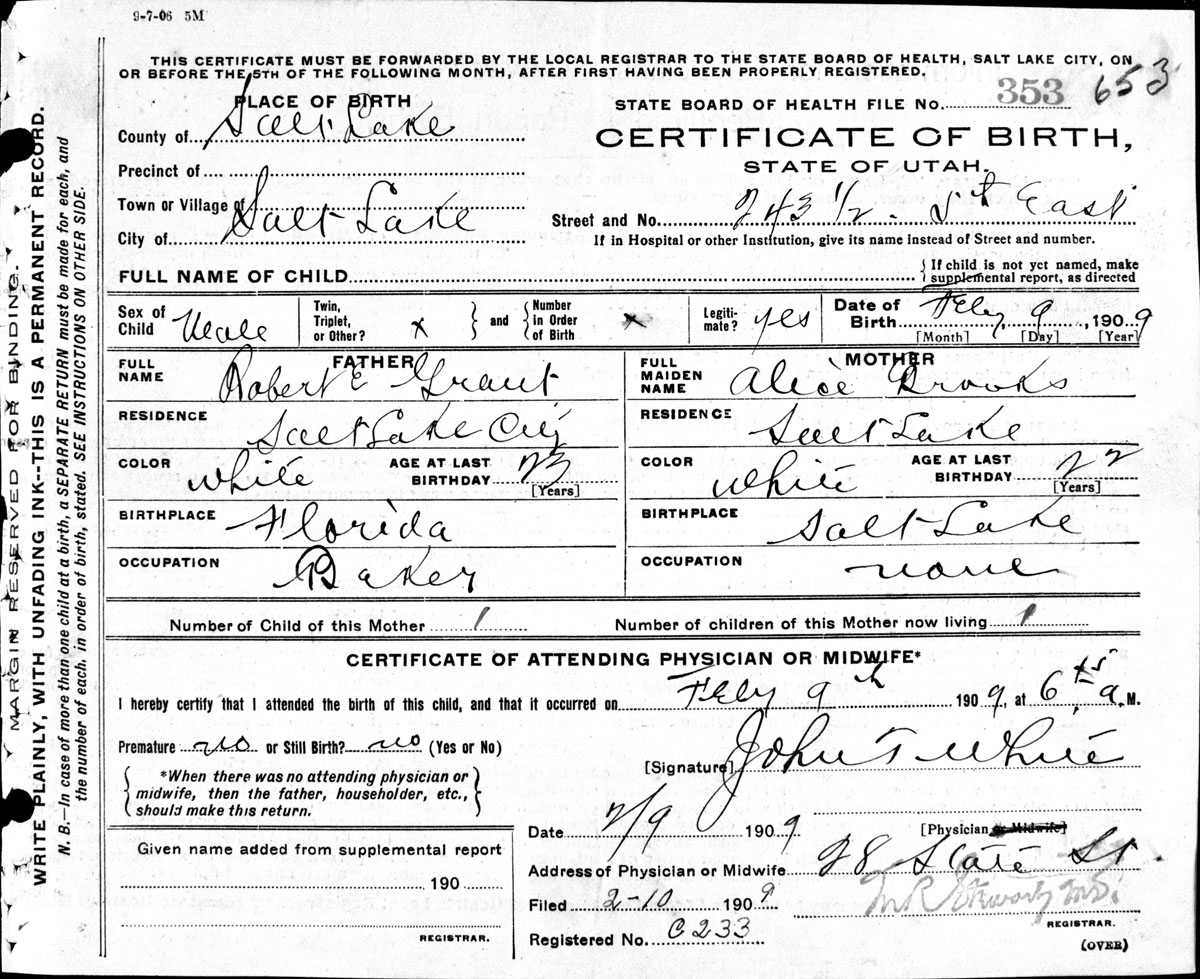 9-7-06 5M
THIS CERTIFICATE MUST BE FORWARDED BY THE LOCAL REGISTRAR TO THE STATE BOARD OF HEALTH, SALT LAKE CITY, ON
OR BEFORE THE 5TH OF THE FOLLOWING MONTH, AFTER FIRST HAVING BEEN PROPERLY REGISTERED.
PLACE OF BIRTH
County of Salt Lake
Precinct of
Town or Village of
City of Salt Lake
STATE BOARD OF HEALTH FILE No. 353 653
CERTIFICATE OF BIRTH,
STATE OF UTAH.
Street and No. 243 1/2 - East
If in Hospital or other Institution, give its name instead of Street and number.
FULL NAME OF CHILD
{ If child is not yet named, make
supplemental report, as directed
Sex of Child Male
Twin, Triplet, or Other? x } and { Number in Order of Birth x
Legitimate? yes
Date of Birth Feby 9, 1909
[Month] [Day] [Year]
FATHER
FULL NAME Robert E Grant
RESIDENCE Salt Lake City
COLOR White AGE AT LAST BIRTHDAY 23
[Years]
BIRTHPLACE Florida
OCCUPATION Baker
MOTHER
FULL MAIDEN NAME Alice Brooks
RESIDENCE Salt Lake
COLOR White AGE AT LAST BIRTHDAY 22
[Years]
BIRTHPLACE Salt Lake
OCCUPATION none
Number of Child of this Mother 1 Number of children of this Mother now living 1
CERTIFICATE OF ATTENDING PHYSICIAN OR MIDWIFE*
I hereby certify that I attended the birth of this child, and that it occurred on Feby 9th 1909, at 6 15 a. M.
Premature no or Still Birth? no (Yes or No)
{ *When there was no attending physician or
midwife, then the father, householder, etc.,
should make this return. }
[Signature] John T White
[Physician or Midwife]
Date 2/9 1909
Address of Physician or Midwife 28 State St.
Filed 2-10 1909
Registered No. C233
M.D.
REGISTRAR.
(OVER)
Given name added from supplemental report
190
REGISTRAR.
MARGIN RESERVED FOR BINDING.
WRITE PLAINLY, WITH UNFADING INK--THIS IS A PERMANENT RECORD.
N. B.—In case of more than one child at a birth, a SEPARATE RETURN must be made for each, and
the number of each, in order of birth, stated. SEE INSTRUCTIONS ON OTHER SIDE.